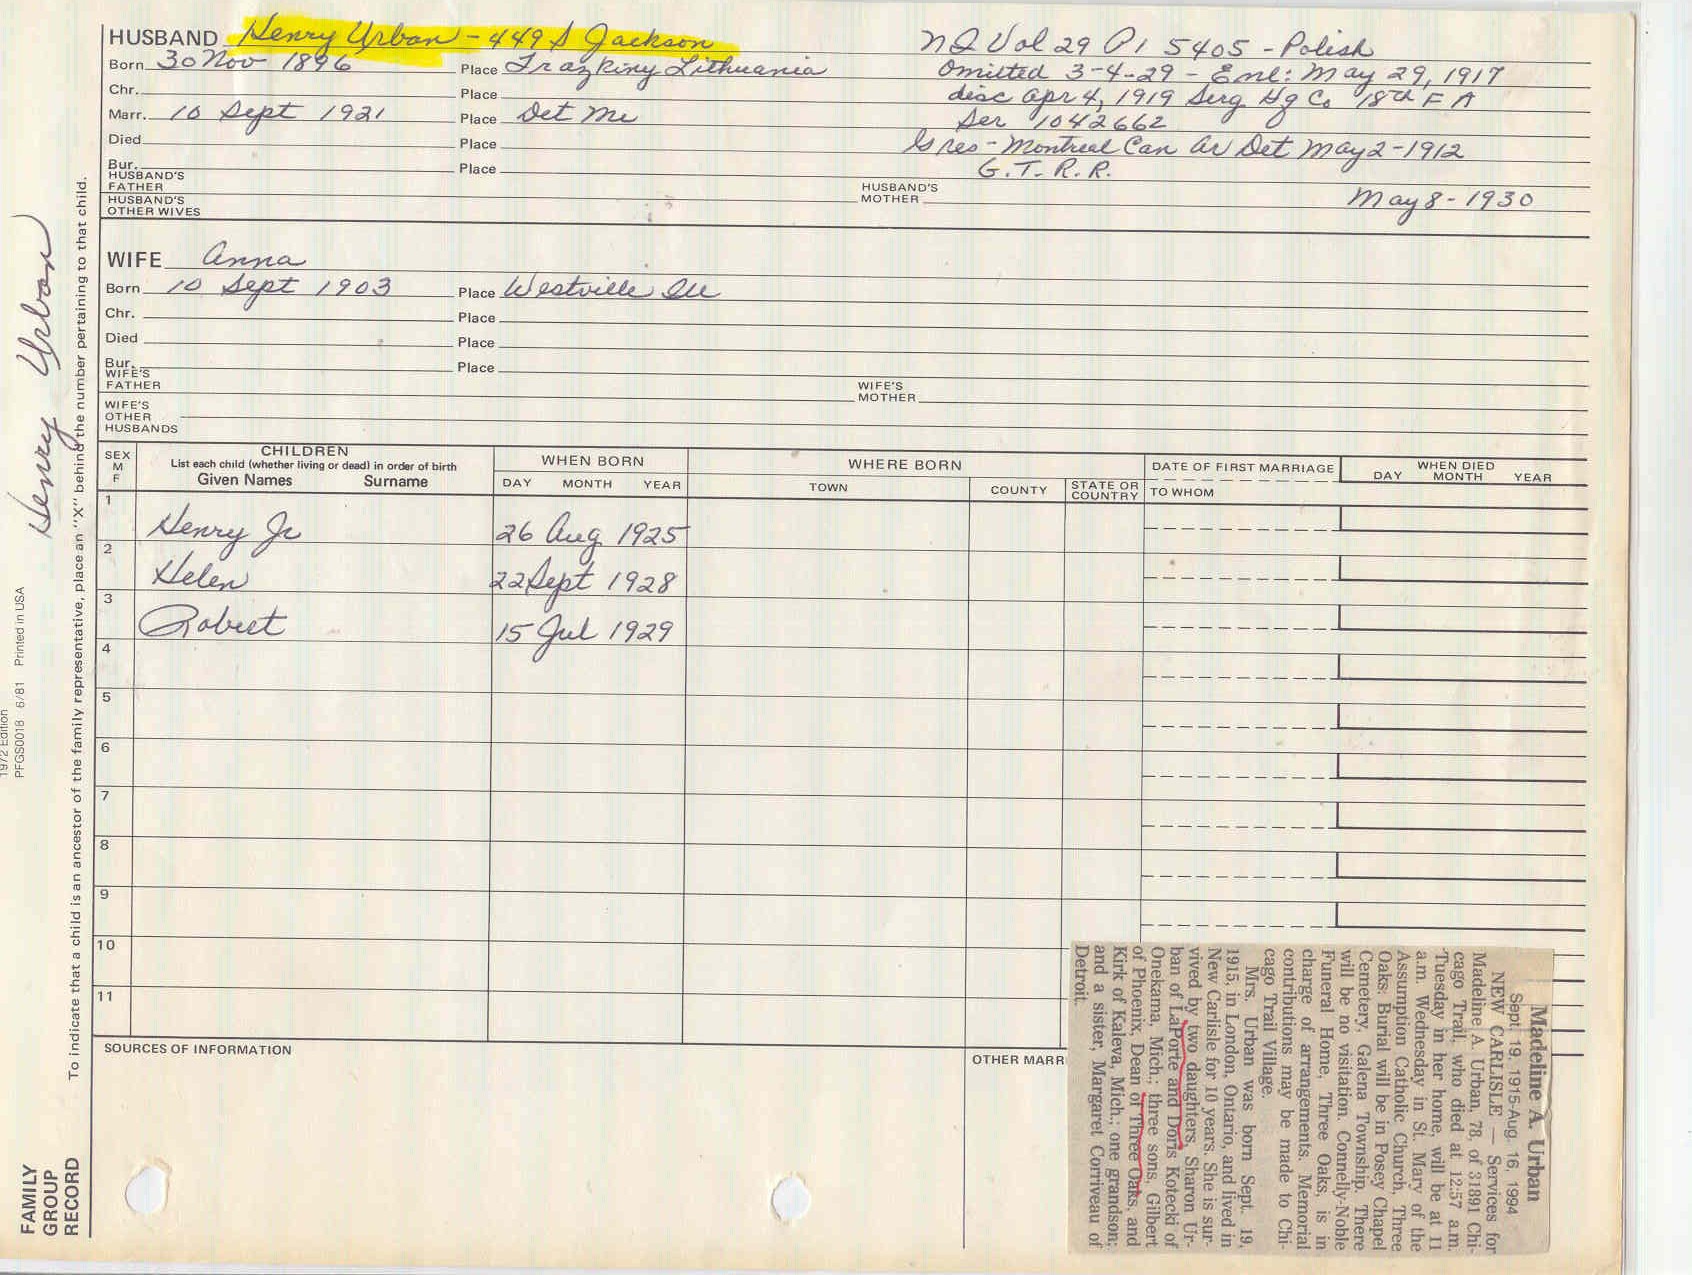 HUSBAND Henry Urban - 449 S Jackson
Born 30 Nov 1896 Place Trazkiny Lithuania
Chr. Place
Marr. 10 Sept 1921 Place Det Mi
Died Place
Bur. Place
HUSBAND'S FATHER
HUSBAND'S MOTHER
HUSBAND'S OTHER WIVES
Vol 29 5405 - Polish
Omitted 3-4-29 - Enl: May 29, 1917
disc Apr 4, 1919 Serg Hg Co 18th F A
Ser 1042662
res - Montreal Can Ar Det May 2-1912
G. T. R. R.
May 8 - 1930
WIFE Anna
Born 10 Sept 1903 Place Westville Ill
Chr. Place
Died Place
Bur. Place
WIFE'S FATHER
WIFE'S MOTHER
WIFE'S OTHER HUSBANDS
SEX M F
CHILDREN
List each child (whether living or dead) in order of birth
Given Names Surname
WHEN BORN
DAY MONTH YEAR
WHERE BORN
TOWN COUNTY STATE OR COUNTRY
DATE OF FIRST MARRIAGE
TO WHOM
WHEN DIED
DAY MONTH YEAR
1 Henry Jr 26 Aug 1925
2 Helen 22 Sept 1928
3 Robert 15 Jul 1929
4
5
6
7
8
9
10
11
SOURCES OF INFORMATION
OTHER MARR
Madeline A. Urban
Sept. 19, 1915-Aug. 16, 1994
NEW CARLISLE — Services for
Madeline A. Urban, 78, of 31891 Chi-
cago Trail, who died at 12:57 a.m.
Tuesday in her home, will be at 11
a.m. Wednesday in St. Mary of the
Assumption Catholic Church, Three
Oaks. Burial will be in Posey Chapel
Cemetery, Galena Township. There
will be no visitation. Connelly-Noble
Funeral Home, Three Oaks, is in
charge of arrangements. Memorial
contributions may be made to Chi-
cago Trail Village.
Mrs. Urban was born Sept. 19,
1915, in London, Ontario, and lived in
New Carlisle for 10 years. She is sur-
vived by two daughters, Sharon Ur-
ban of LaPorte and Doris Kotecki of
Onekama, Mich.; three sons, Gilbert
of Phoenix, Dean of Three Oaks, and
Kirk of Kaleva, Mich.; one grandson;
and a sister, Margaret Corriveau of
Detroit.
Henry Urban
To indicate that a child is an ancestor of the family representative, place an "X" behind the number pertaining to that child.
1972 Edition
PFGS0018 6/81 Printed in USA
FAMILY
GROUP
RECORD